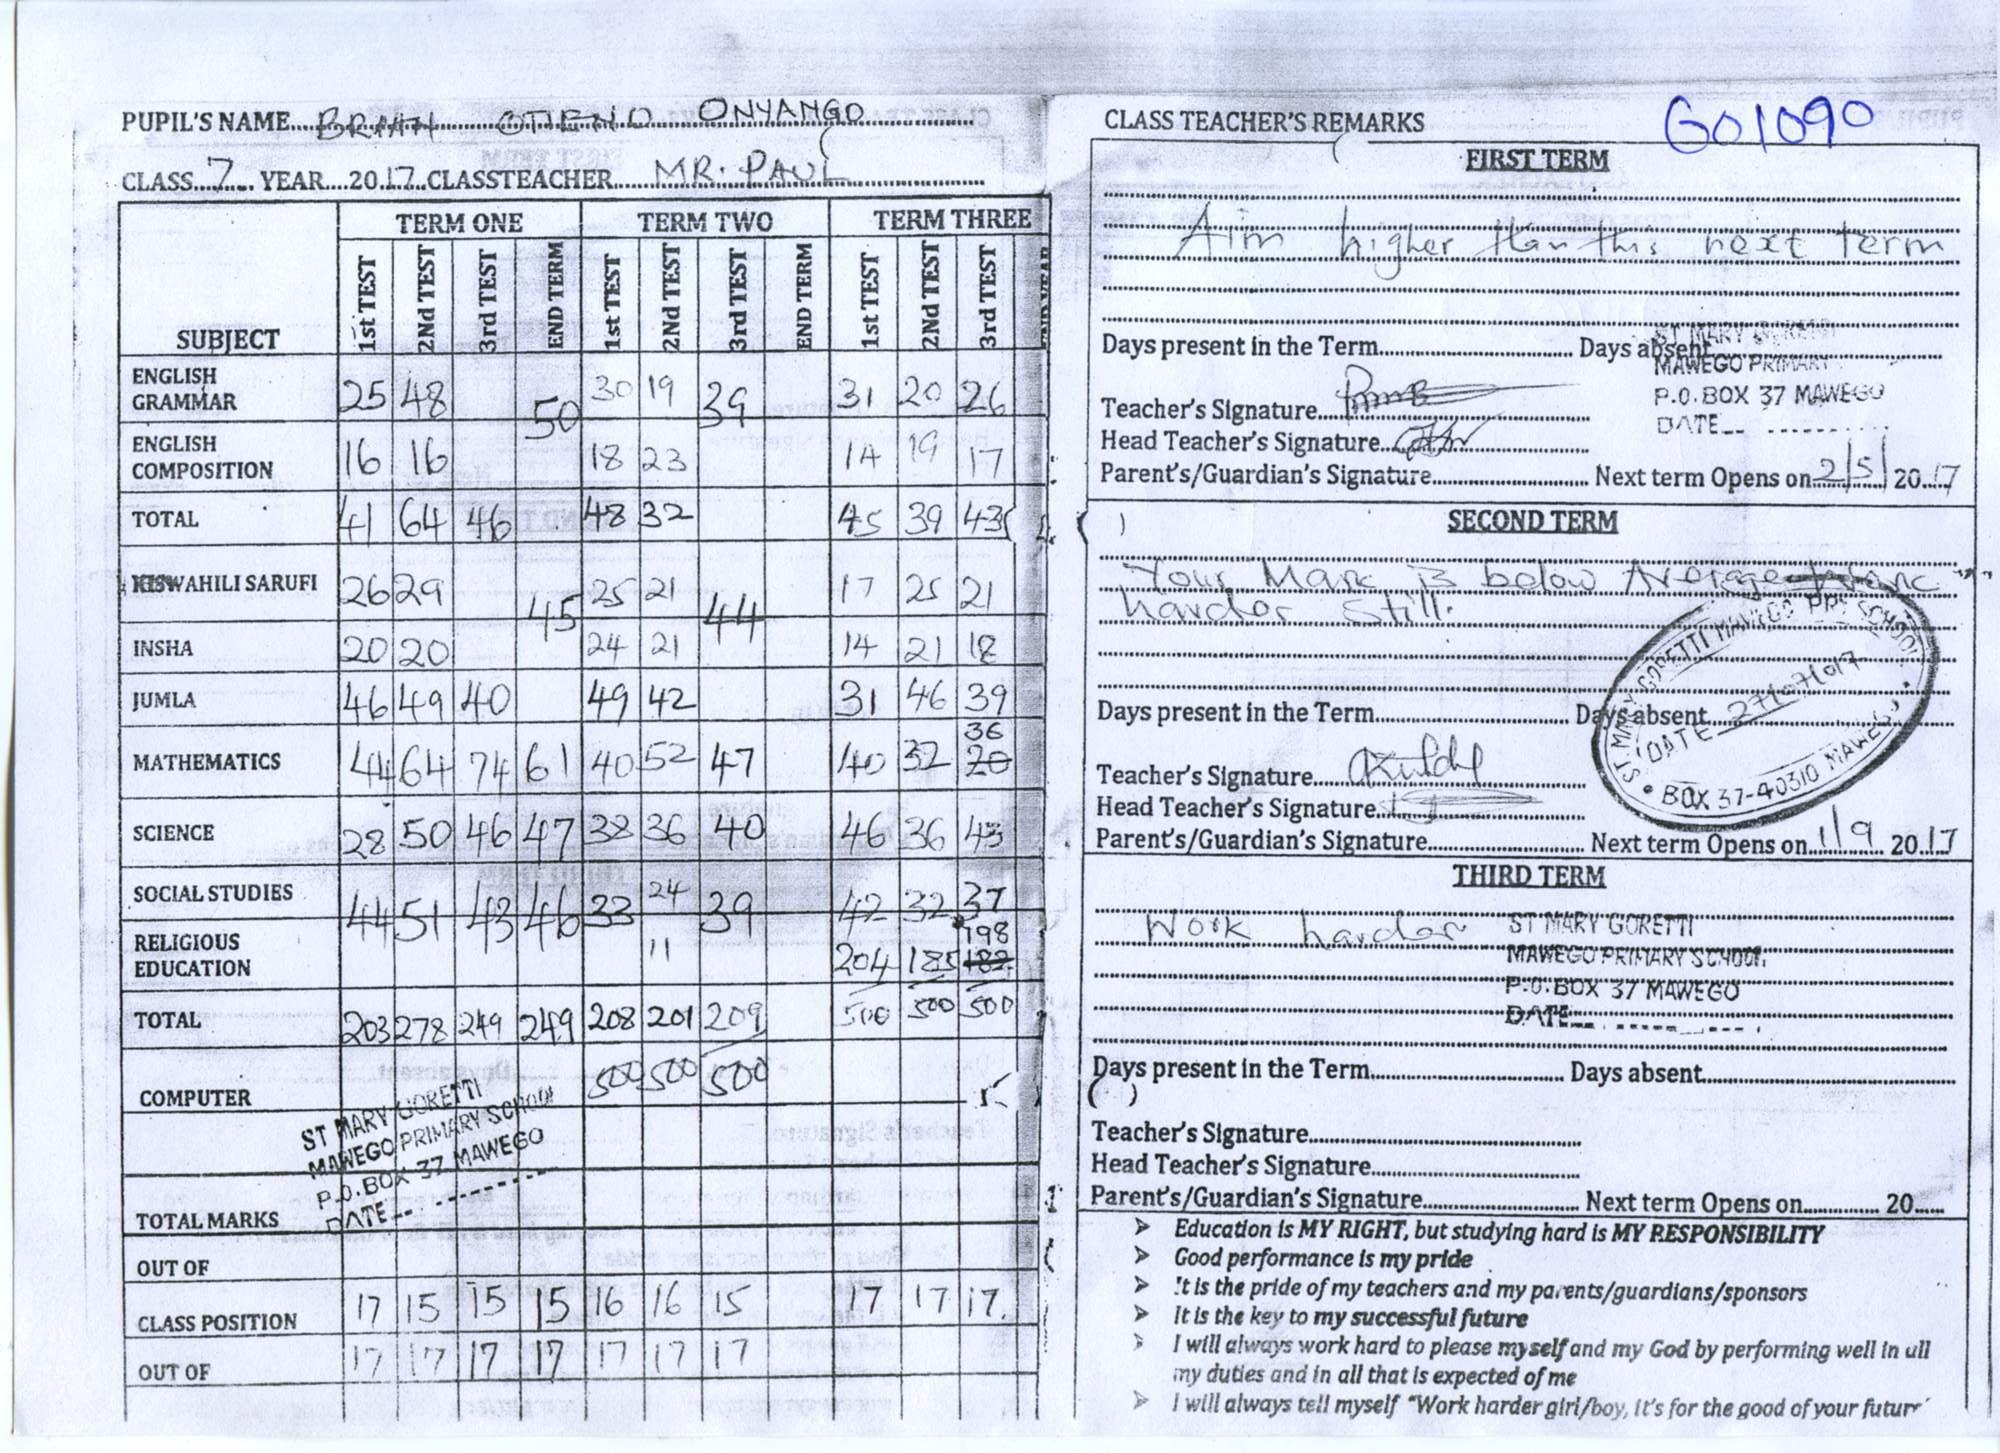 PUPIL'S NAME BRIAN OTIENO ONYANGO
CLASS 7 YEAR 2017 CLASSTEACHER MR. PAUL
SUBJECT TERM ONE TERM TWO TERM THREE
1st TEST 2Nd TEST 3rd TEST END TERM 1st TEST 2Nd TEST 3rd TEST END TERM 1st TEST 2Nd TEST 3rd TEST
ENGLISH GRAMMAR 25 48 50 30 19 39 31 20 26
ENGLISH COMPOSITION 16 16 18 23 14 19 17
TOTAL 41 64 46 48 32 45 39 43
KISWAHILI SARUFI 26 29 45 25 21 44 17 25 21
INSHA 20 20 24 21 14 21 18
JUMLA 46 49 40 49 42 31 46 39
36
MATHEMATICS 44 64 74 61 40 52 47 40 32 20
SCIENCE 28 50 46 47 38 36 40 46 36 43
SOCIAL STUDIES 44 51 43 46 33 24 39 42 32 37
198
RELIGIOUS EDUCATION 11 204 185 182
TOTAL 203 278 249 249 208 201 209 500 500 500
COMPUTER 500 500 500
ST MARY GORETTI
MAWEGO PRIMARY SCHOOL
P.O. BOX 37 MAWEGO
DATE
TOTAL MARKS
OUT OF
CLASS POSITION 17 15 15 15 16 16 15 17 17 17.
OUT OF 17 17 17 17 17 17 17
CLASS TEACHER'S REMARKS GO1090
FIRST TERM
Aim higher than this next term
Days present in the Term Days absent
ST MARY GORETTI
MAWEGO PRIMARY
P.O. BOX 37 MAWEGO
DATE
Teacher's Signature
Head Teacher's Signature
Parent's/Guardian's Signature Next term Opens on 2/5/2017
SECOND TERM
Your Mark is below Average
harder still.
Days present in the Term Days absent
ST MARY GORETTI MAWEGO PRY SCHOOL
DATE 27/07/017
BOX 37-40310 MAWEGO
Teacher's Signature
Head Teacher's Signature
Parent's/Guardian's Signature Next term Opens on 1/9 2017
THIRD TERM
Work harder
ST MARY GORETTI
MAWEGO PRIMARY SCHOOL
P.O. BOX 37 MAWEGO
DATE
Days present in the Term Days absent
Teacher's Signature
Head Teacher's Signature
Parent's/Guardian's Signature Next term Opens on 20
Education is MY RIGHT, but studying hard is MY RESPONSIBILITY
Good performance is my pride
It is the pride of my teachers and my parents/guardians/sponsors
It is the key to my successful future
I will always work hard to please myself and my God by performing well in all
my duties and in all that is expected of me
I will always tell myself "Work harder girl/boy, it's for the good of your future